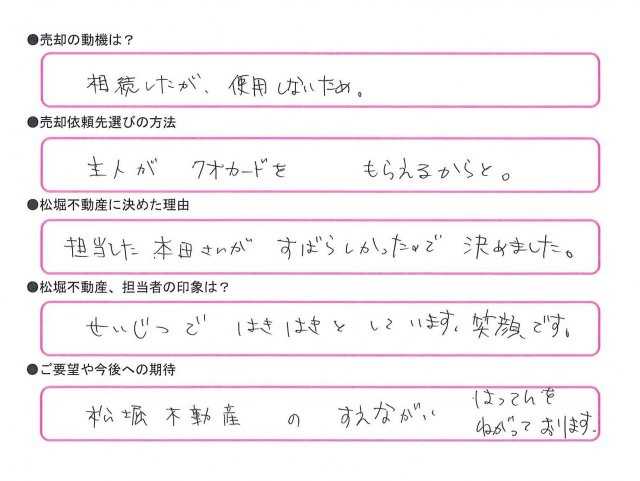 ●売却の動機は？
相続したが、使用しないため。
●売却依頼先選びの方法
主人が クオカードを もらえるからと。
●松堀不動産に決めた理由
担当した本田さんが すばらしかったので 決めました。
●松堀不動産、担当者の印象は？
せいじつで はきはきと しています、笑顔です。
●ご要望や今後への期待
松堀不動産 の すえながい はってんを
ねがっております。